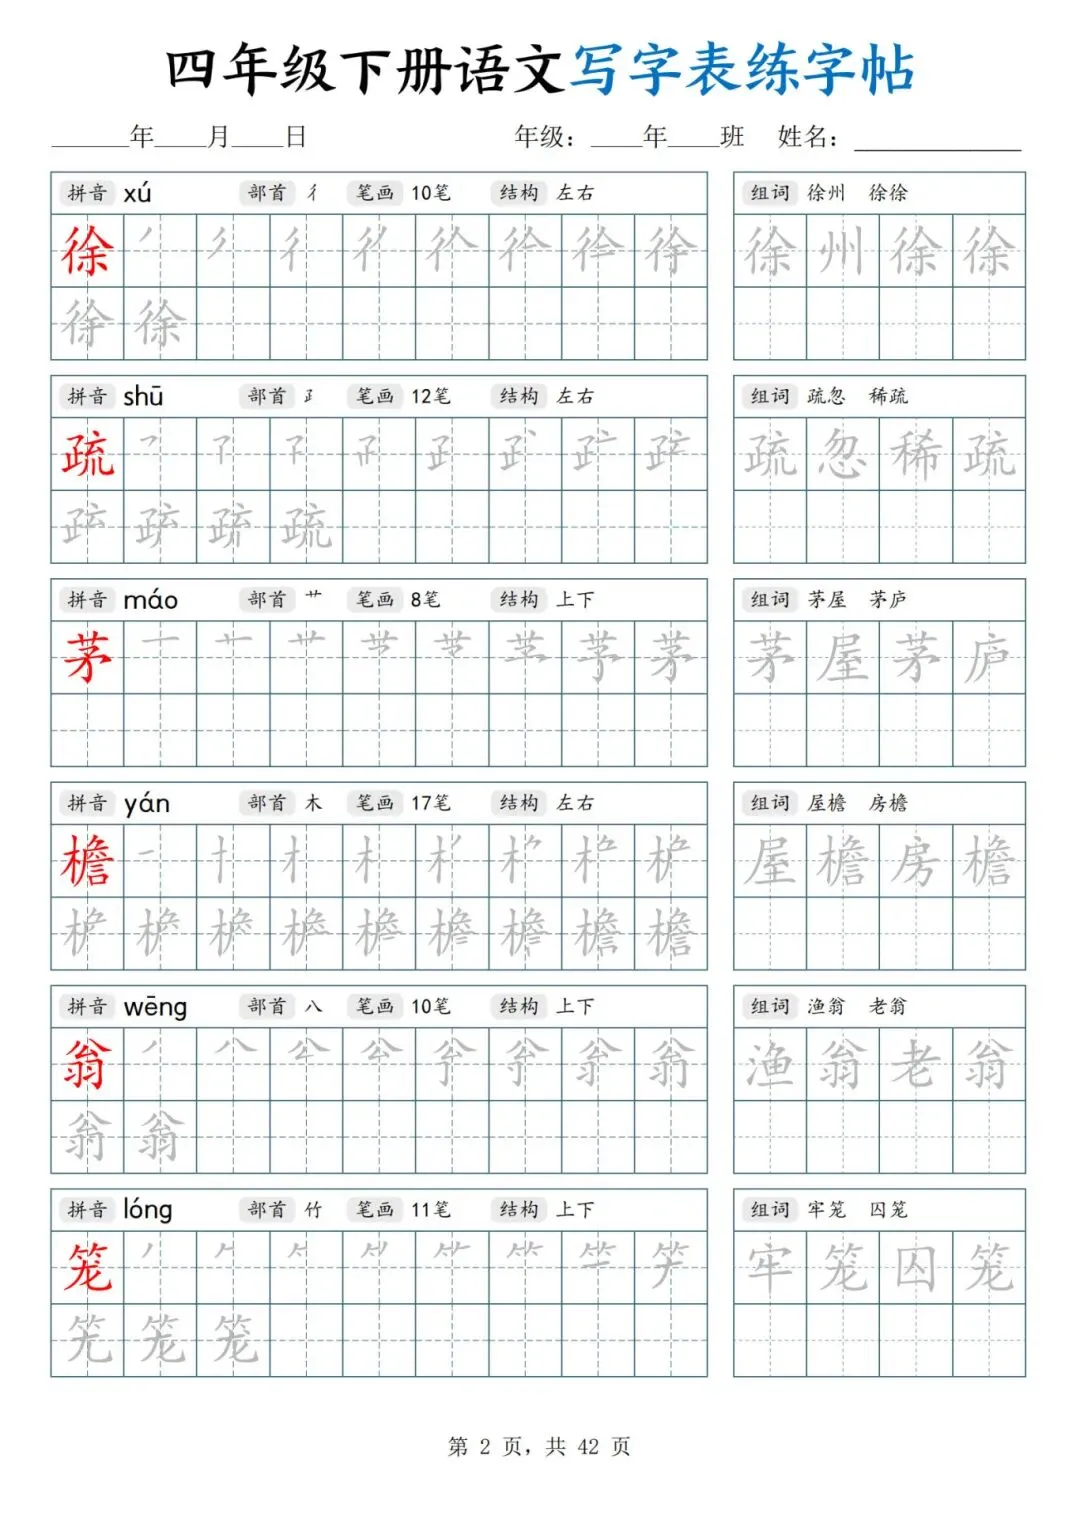 四年级下册语文写字表练字帖
______年____月____日 年级：____年____班 姓名：____________
拼音 xú 部首 彳 笔画 10笔 结构 左右 组词 徐州 徐徐
徐 徐 州 徐 徐
徐 徐
拼音 shū 部首 𤴔 笔画 12笔 结构 左右 组词 疏忽 稀疏
疏 疏 忽 稀 疏
疏
拼音 máo 部首 艹 笔画 8笔 结构 上下 组词 茅屋 茅庐
茅 茅 茅 屋 茅 庐
拼音 yán 部首 木 笔画 17笔 结构 左右 组词 屋檐 房檐
檐 屋 檐 房 檐
檐
拼音 wēng 部首 八 笔画 10笔 结构 上下 组词 渔翁 老翁
翁 渔 翁 老 翁
翁
拼音 lóng 部首 竹 笔画 11笔 结构 上下 组词 牢笼 囚笼
笼 牢 笼 囚 笼
笼
第 2 页，共 42 页